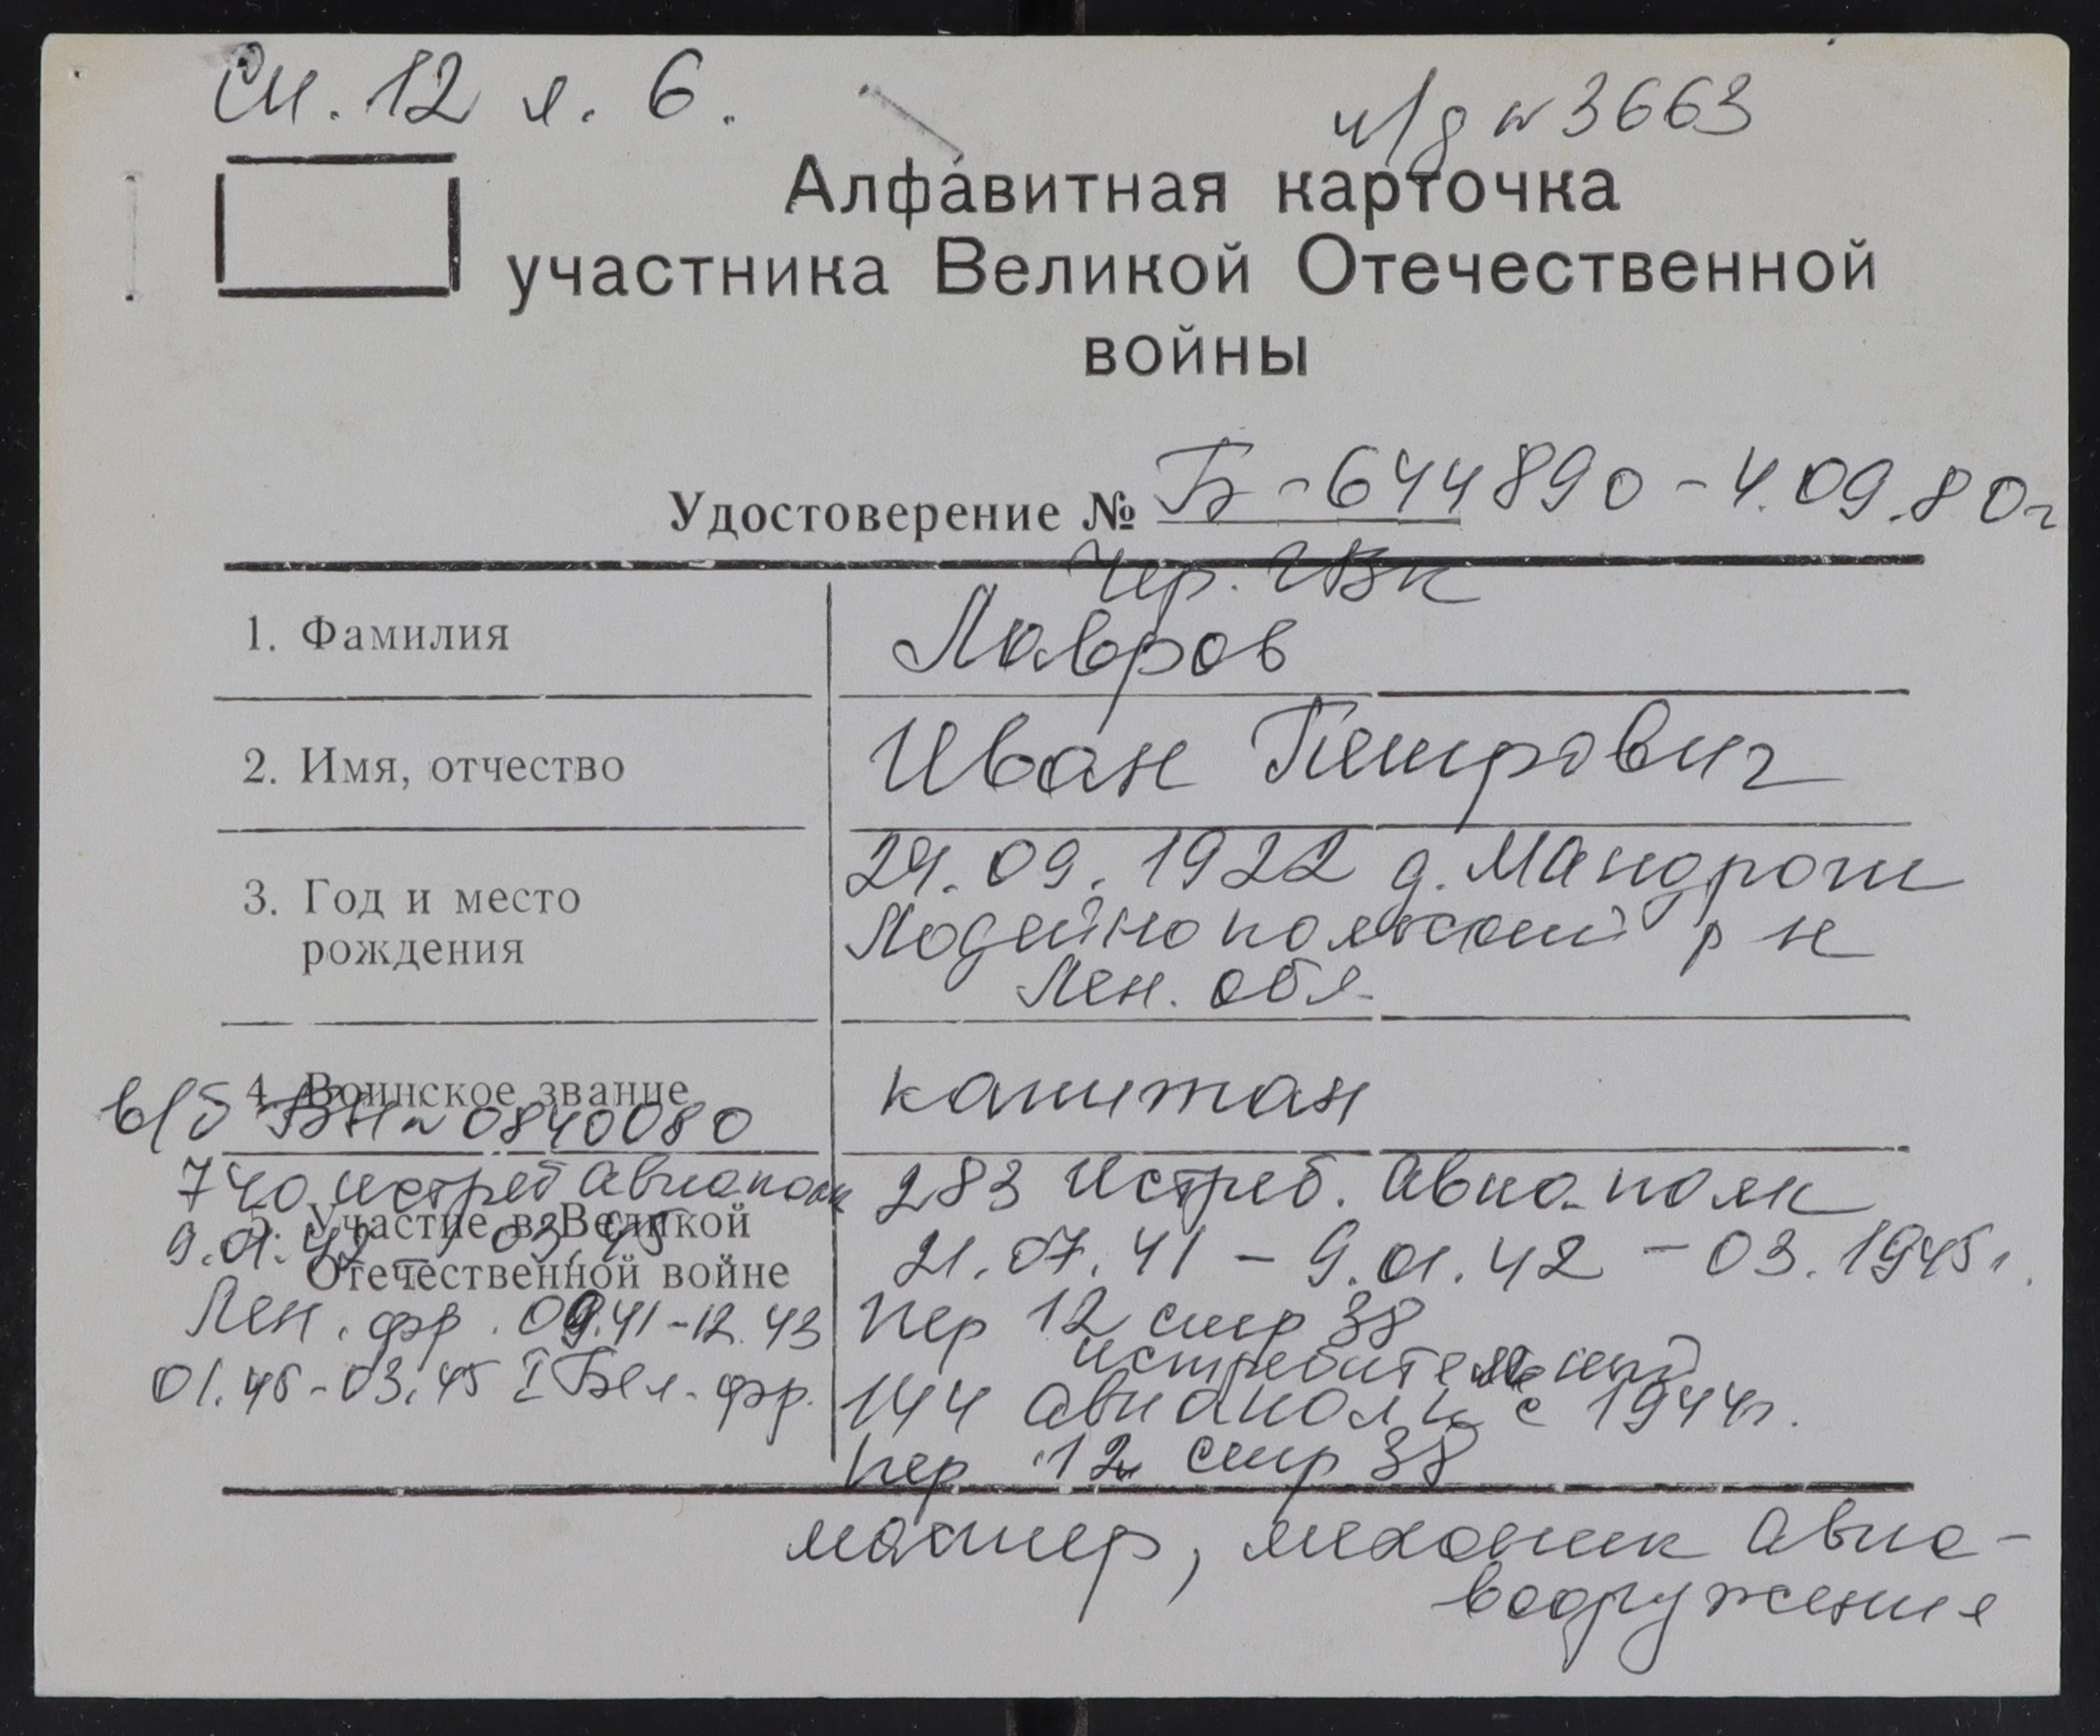 Сп. 12 л. 6.
л/д № 3663
Алфавитная карточка
участника Великой Отечественной
войны
Удостоверение № Б-644890 - 4.09.80г
Чер. ГВК
1. Фамилия Лавров
2. Имя, отчество Иван Петрович
3. Год и место рождения 29.09.1922 д. Мандроги
Лодейнопольский р-н
Лен. обл.
4. Воинское звание капитан
в/б ВН № 0840080
5. Участие в Великой
Отечественной войне
740 истреб авиаполк
9.01.42 - 03.45
Лен. фр. 09.41-12.43
01.45-03.45 I Бел. фр.
283 истреб. авиа.полк
21.07.41 - 9.01.42 - 03.1945г.
пер 12 стр 38
истребительный
144 авиаполк с 1944г.
пер 12 стр 38
мастер, механик авиа-
вооружения